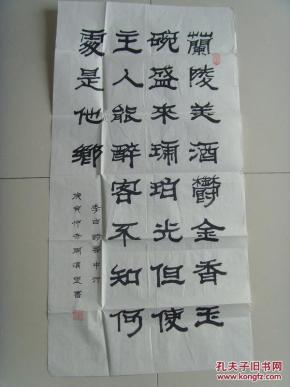 蘭陵美酒鬱金香玉
碗盛來琥珀光但使
主人能醉客不知何
處是他鄉
李白詩客中行
孔夫子旧书网